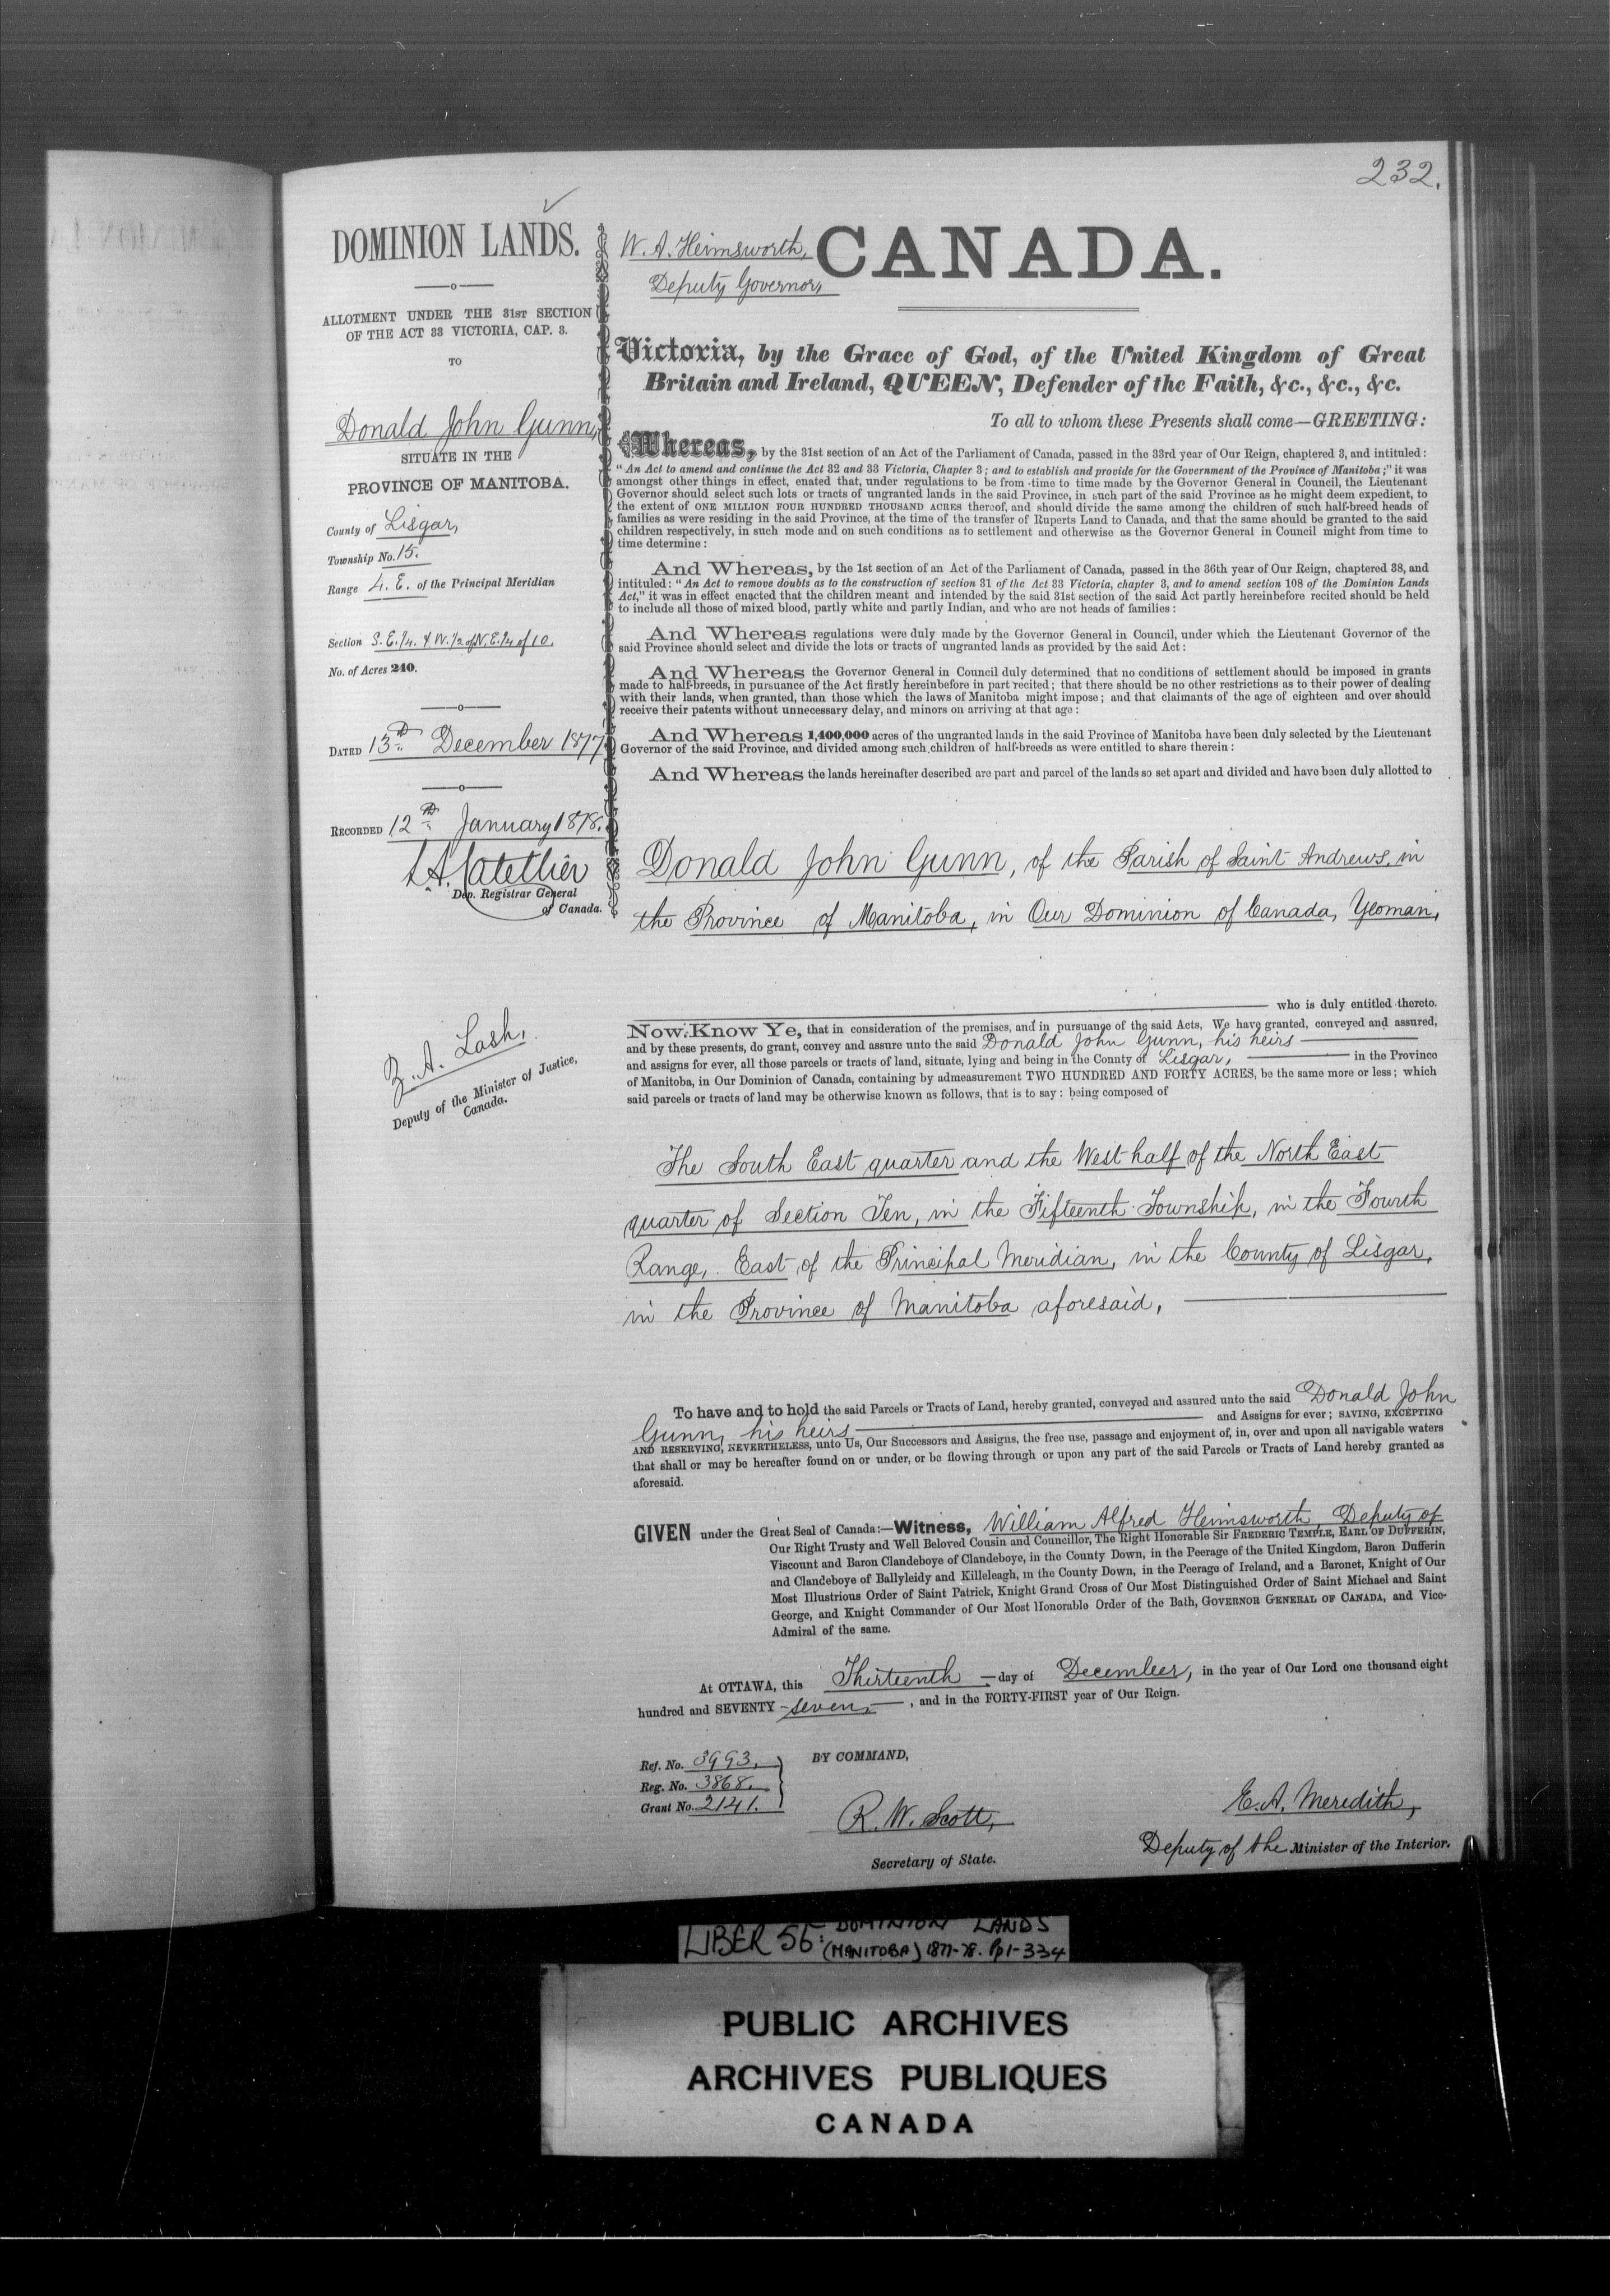 232.
DOMINION LANDS.
ALLOTMENT UNDER THE 31ST SECTION
OF THE ACT 33 VICTORIA, CAP. 3.
TO
Donald John Gunn,
SITUATE IN THE
PROVINCE OF MANITOBA.
County of Lisgar,
Township No. 15.
Range 4. E. of the Principal Meridian
Section S. E. 1/4. & W. 1/2 of N. E. 1/4 of 10.
No. of Acres 240.
DATED 13th December 1877
RECORDED 12th January 1878.
Dep. Registrar General
of Canada.
Z. A. Lash,
Deputy of the Minister of Justice,
Canada.
W. A. Himsworth,
Deputy Governor,
CANADA.
Victoria, by the Grace of God, of the United Kingdom of Great
Britain and Ireland, QUEEN, Defender of the Faith, &c., &c., &c.
To all to whom these Presents shall come—GREETING:
Whereas, by the 31st section of an Act of the Parliament of Canada, passed in the 33rd year of Our Reign, chaptered 3, and intituled:
"An Act to amend and continue the Act 32 and 33 Victoria, Chapter 3; and to establish and provide for the Government of the Province of Manitoba;" it was
amongst other things in effect, enated that, under regulations to be from time to time made by the Governor General in Council, the Lieutenant
Governor should select such lots or tracts of ungranted lands in the said Province, in such part of the said Province as he might deem expedient, to
the extent of ONE MILLION FOUR HUNDRED THOUSAND ACRES thereof, and should divide the same among the children of such half-breed heads of
families as were residing in the said Province, at the time of the transfer of Ruperts Land to Canada, and that the same should be granted to the said
children respectively, in such mode and on such conditions as to settlement and otherwise as the Governor General in Council might from time to
time determine:
And Whereas, by the 1st section of an Act of the Parliament of Canada, passed in the 36th year of Our Reign, chaptered 38, and
intituled: "An Act to remove doubts as to the construction of section 31 of the Act 33 Victoria, chapter 3, and to amend section 108 of the Dominion Lands
Act," it was in effect enacted that the children meant and intended by the said 31st section of the said Act partly hereinbefore recited should be held
to include all those of mixed blood, partly white and partly Indian, and who are not heads of families:
And Whereas regulations were duly made by the Governor General in Council, under which the Lieutenant Governor of the
said Province should select and divide the lots or tracts of ungranted lands as provided by the said Act:
And Whereas the Governor General in Council duly determined that no conditions of settlement should be imposed in grants
made to half-breeds, in pursuance of the Act firstly hereinbefore in part recited; that there should be no other restrictions as to their power of dealing
with their lands, when granted, than those which the laws of Manitoba might impose; and that claimants of the age of eighteen and over should
receive their patents without unnecessary delay, and minors on arriving at that age:
And Whereas 1,400,000 acres of the ungranted lands in the said Province of Manitoba have been duly selected by the Lieutenant
Governor of the said Province, and divided among such children of half-breeds as were entitled to share therein:
And Whereas the lands hereinafter described are part and parcel of the lands so set apart and divided and have been duly allotted to
Donald John Gunn, of the Parish of Saint Andrews, in
the Province of Manitoba, in Our Dominion of Canada, Yeoman,
who is duly entitled thereto.
Now Know Ye, that in consideration of the premises, and in pursuance of the said Acts, We have granted, conveyed and assured,
and by these presents, do grant, convey and assure unto the said Donald John Gunn, his heirs
and assigns for ever, all those parcels or tracts of land, situate, lying and being in the County of Lisgar, in the Province
of Manitoba, in Our Dominion of Canada, containing by admeasurement TWO HUNDRED AND FORTY ACRES, be the same more or less; which
said parcels or tracts of land may be otherwise known as follows, that is to say: being composed of
The South East quarter and the West half of the North East
quarter of Section Ten, in the Fifteenth Township, in the Fourth
Range, East of the Principal Meridian, in the County of Lisgar,
in the Province of Manitoba aforesaid,
To have and to hold the said Parcels or Tracts of Land, hereby granted, conveyed and assured unto the said Donald John
Gunn, his heirs and Assigns for ever; SAVING, EXCEPTING
AND RESERVING, NEVERTHELESS, unto Us, Our Successors and Assigns, the free use, passage and enjoyment of, in, over and upon all navigable waters
that shall or may be hereafter found on or under, or be flowing through or upon any part of the said Parcels or Tracts of Land hereby granted as
aforesaid.
GIVEN under the Great Seal of Canada:—Witness, William Alfred Himsworth, Deputy of
Our Right Trusty and Well Beloved Cousin and Councillor, The Right Honorable Sir FREDERIC TEMPLE, EARL OF DUFFERIN,
Viscount and Baron Clandeboye of Clandeboye, in the County Down, in the Peerage of the United Kingdom, Baron Dufferin
and Clandeboye of Ballyleidy and Killeleagh, in the County Down, in the Peerage of Ireland, and a Baronet, Knight of Our
Most Illustrious Order of Saint Patrick, Knight Grand Cross of Our Most Distinguished Order of Saint Michael and Saint
George, and Knight Commander of Our Most Honorable Order of the Bath, GOVERNOR GENERAL OF CANADA, and Vice-
Admiral of the same.
At OTTAWA, this Thirteenth day of December, in the year of Our Lord one thousand eight
hundred and SEVENTY-seven, and in the FORTY-FIRST year of Our Reign.
Ref. No. 3993.
Reg. No. 3868.
Grant No. 2141.
BY COMMAND,
R. W. Scott,
Secretary of State.
E. A. Meredith,
Deputy of the Minister of the Interior.
LIBER 56: DOMINION LANDS
(MANITOBA) 1877-78. Pp 1-334
PUBLIC ARCHIVES
ARCHIVES PUBLIQUES
CANADA